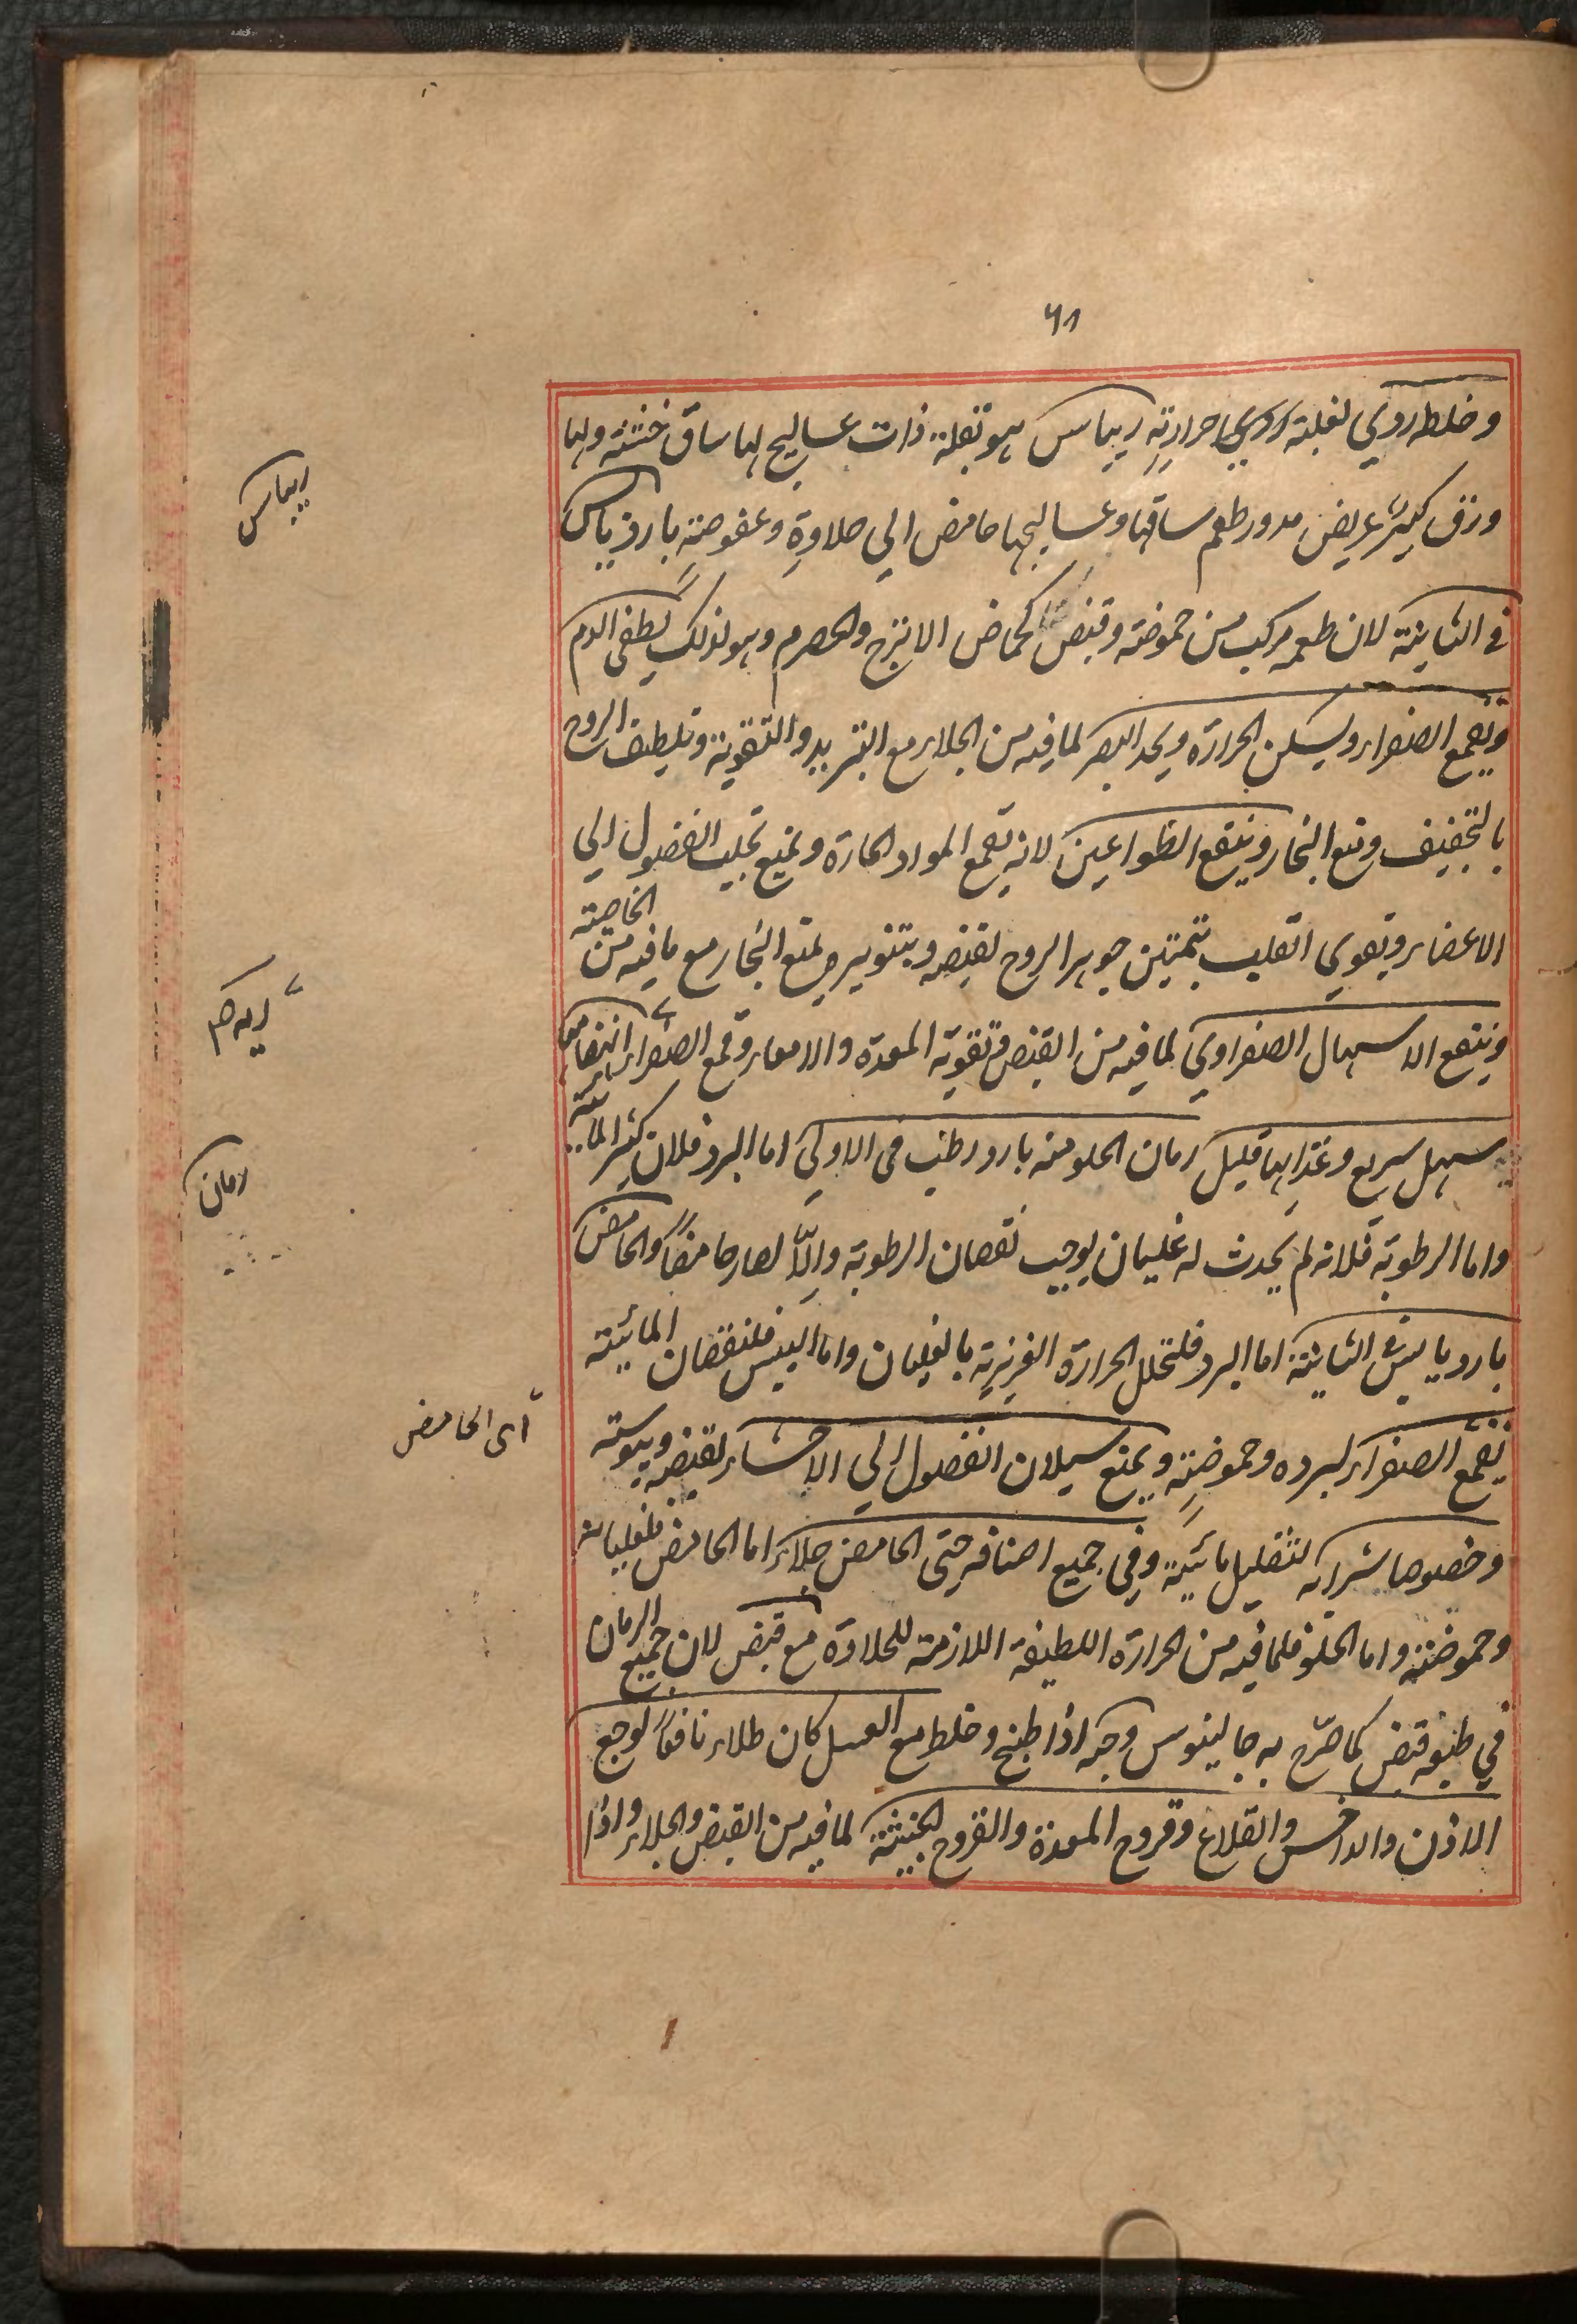 ٦٨
وخلطه ردي لغلبة حرارته ريباس هو بقلة ذات عساليج لها ساق خشنة ولها
ورق كبير عريض مدور طعم ساقها وعساليجها حامض الي حلاوة وعفوصة بارد يابس
في الثانية لان طعمه مركب من حموضة وقبض كحماض الاترج والحصرم وهو لذلك يطفي الدم
ويقمع الصفراء ويسكن الحرارة ويحد البصر لما فيه من الجلاء مع التبريد والتقوية وتلطيف الروح
بالتجفيف ومنع البخار وينفع الطواعين لانه يقمع المواد الحارة ويمنع تحلب الفضول الي
الاعضاء ويقوي القلب بتمتين جوهر الروح لقبضه وبتنويره يمنع البخار مع ما فيه من الخاصية
وينفع الاسهال الصفراوي لما فيه من القبض وتقوية المعدة والامعاء وقمع الصفراء
سهل سريع وغذاءها قليل رمان الحلو منه بارد رطب في الاولي اما البرد فلان كثير المائية
واما الرطوبة فلانه لم يحدث له غليان يوجب نقصان الرطوبة والّا لصار حامضاً والحامض
بارد يابس في الثانية اما البرد فلتحلل الحرارة الغريزية بالغليان واما اليبس فلنقصان المائية
يقمع الصفراء لبرده وحموضته ويمنع سيلان الفضول الي الاحشاء لقبضه ويبوسته
وخصوصا شرابه لتقليل مائيته وفي جميع اصنافه حتى الحامض جلاء اما الحامض فلغليانه
وحموضته واما الحلو فلما فيه من الحرارة اللطيفة اللازمة للحلاوة مع قبض لان جميع الرمان
في طبعه قبض كما صرّح به جالينوس وحبه اذا طبخ وخلط مع العسل كان طلاء نافعاً لوجع
الاذن والداحس والقلاع وقروح المعدة والقروح الخبيثة لما فيه من القبض والجلاء واذا
ريباس
رمان
أي الحامض